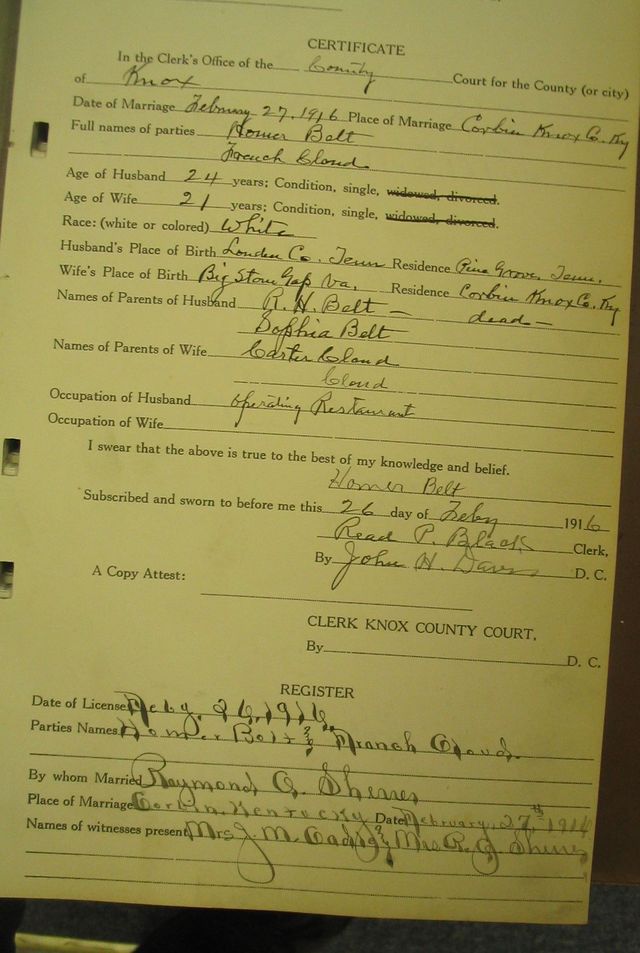 CERTIFICATE
In the Clerk's Office of the County Court for the County (or city)
of Knox
Date of Marriage February 27, 1916 Place of Marriage Corbin Knox Co. Ky
Full names of parties Homer Belt
French Cloud
Age of Husband 24 years; Condition, single, widowed, divorced.
Age of Wife 21 years; Condition, single, widowed, divorced.
Race: (white or colored) White
Husband's Place of Birth Louden Co. Tenn Residence Pine Grove, Tenn.
Wife's Place of Birth Big Stone Gap Va. Residence Corbin Knox Co. Ky
Names of Parents of Husband R. H. Belt — dead —
Sophia Belt
Names of Parents of Wife Carter Cloud
Cloud
Occupation of Husband operating Restaurant
Occupation of Wife
I swear that the above is true to the best of my knowledge and belief.
Homer Belt
Subscribed and sworn to before me this 26 day of Feby 1916
Read P. Black Clerk,
By John H. Davis D. C.
A Copy Attest:
CLERK KNOX COUNTY COURT.
By D. C.
REGISTER
Date of License Feby. 26, 1916
Parties Names Homer Belt & French Cloud.
By whom Married Raymond G. 
Place of Marriage Corbin, Kentucky Date February, 27th 1916
Names of witnesses present Mrs J. M. & Mrs R. G.